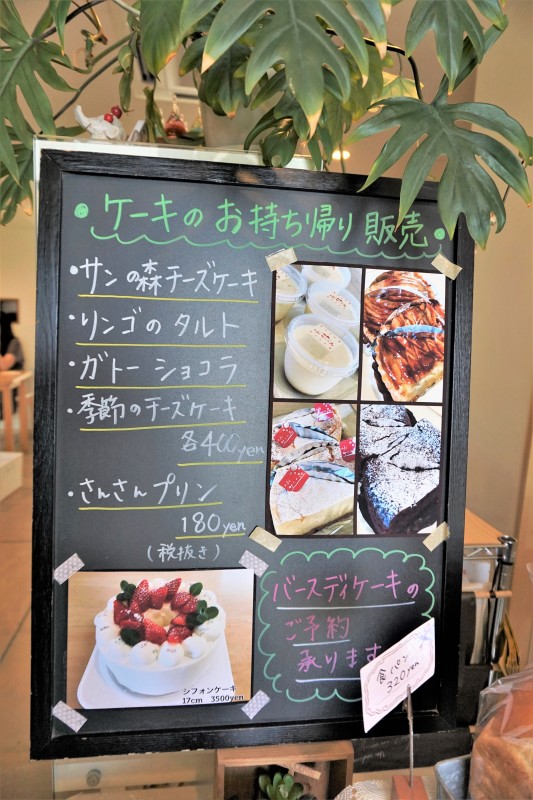 • ケーキの お持ち帰り 販売 •
・サンの森チーズケーキ
・リンゴの タルト
・ガトー ショコラ
・季節のチーズケーキ
各400yen
・さんさんプリン
180yen
(税抜き)
シフォンケーキ
17cm 3500yen
バースディケーキの
ご予約
承ります
食パン
320yen